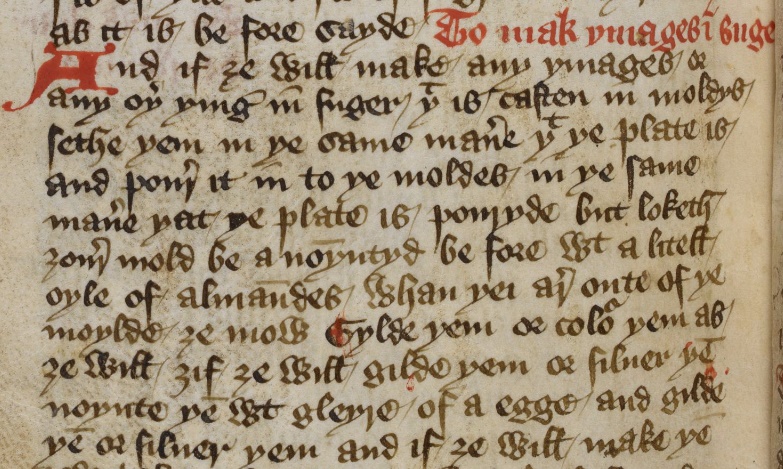 as it is be fore sayde To mak ymages ī suge
And if ȝe will make any ymages or
any oþ̉ yīng in suger yͭ is casten in moldys
sethe yem in ye same man̄e yͭ ye plate is
and pour̉ it in to ye moldes in ye same
man̄e yat ye plate is pouryde but loketh
ȝour̉ mold be anoyntyd be fore wt a litell
oyle of almaūdes whan yei ar̉ oute of ye
moylde ȝe mow Gylde yem or colō yem as
ȝe will ȝif ȝe will gilde yem or siluer yē
noynte yē wt gleyre of a egge and gilde
yē or siluer yem and if ȝe will make yē